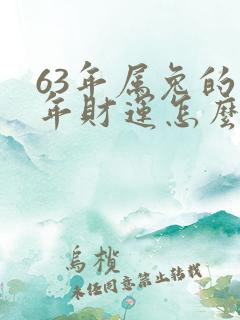 63年属兔的
年财运怎么
乌槓
未经同意禁止转载